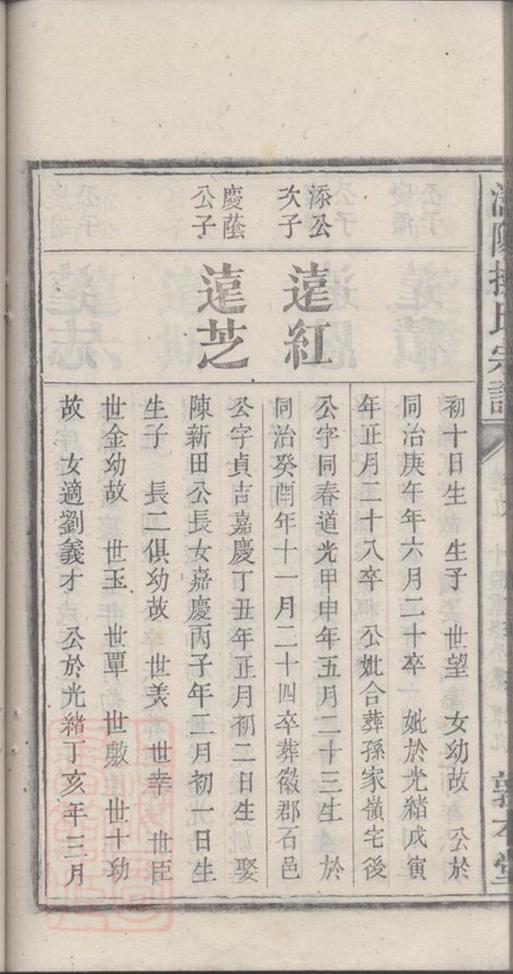 氏宗譜
初十日生 生子 世望 女幼故 公於
同治庚午年六月二十卒 妣於光緒戊寅
年正月二十八卒 公妣合葬孫家嶺宅後
添公次子
遠紅
公字同春道光甲申年五月二十三生 於
同治癸酉年十一月二十四卒葬徽郡石邑
慶蔭公子
遠芝
公字貞吉嘉慶丁丑年正月初二日生 娶
陳新田公長女嘉慶丙子年二月初一日生
生子 長二俱幼故 世美 世幸 世臣
世金幼故 世玉 世覃 世敷 世十幼
故 女適劉義才 公於光緒丁亥年三月